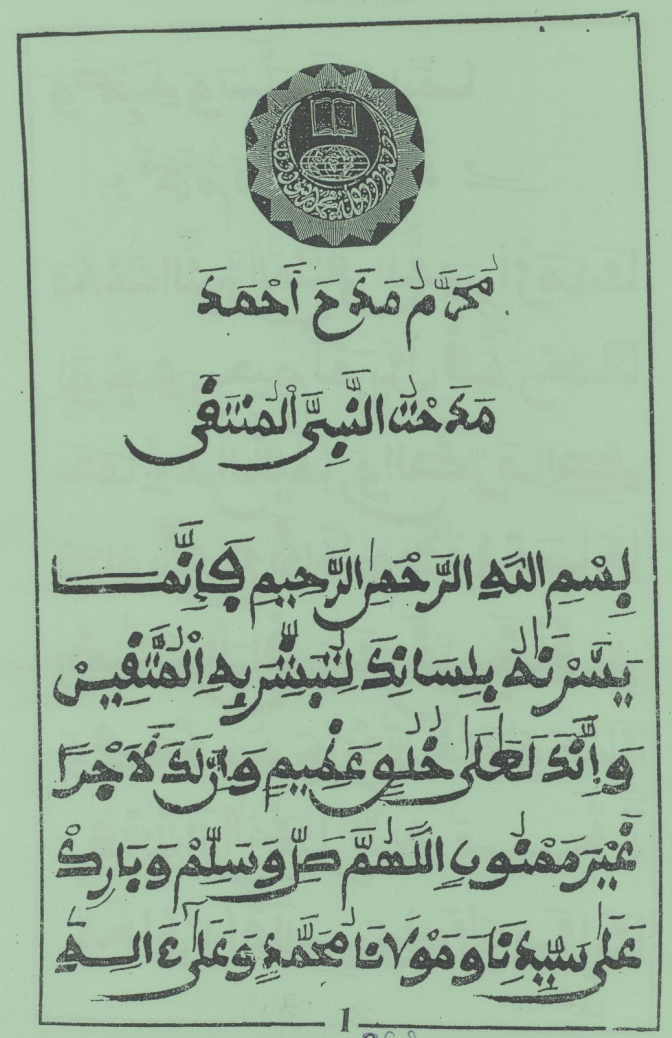 محرم مدح أحمد
مدحت النبي المنتقى
بِسْمِ اللَّهِ الرَّحْمَنِ الرَّحِيمِ فَإِنَّمَا
يَسَّرْنَاهُ بِلِسَانِكَ لِتُبَشِّرَ بِهِ الْمُتَّقِينَ
وَإِنَّكَ لَعَلَى خُلُقٍ عَظِيمٍ وَإِنَّ لَكَ لَأَجْرًا
غَيْرَ مَمْنُونٍ اللَّهُمَّ صَلِّ وَسَلِّمْ وَبَارِكْ
عَلَى سَيِّدِنَا وَمَوْلَانَا مُحَمَّدٍ وَعَلَى ءَالِهِ
1